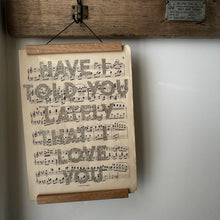 HAVE I
TOLD YOU
LATELY
THAT I
LOVE
YOU